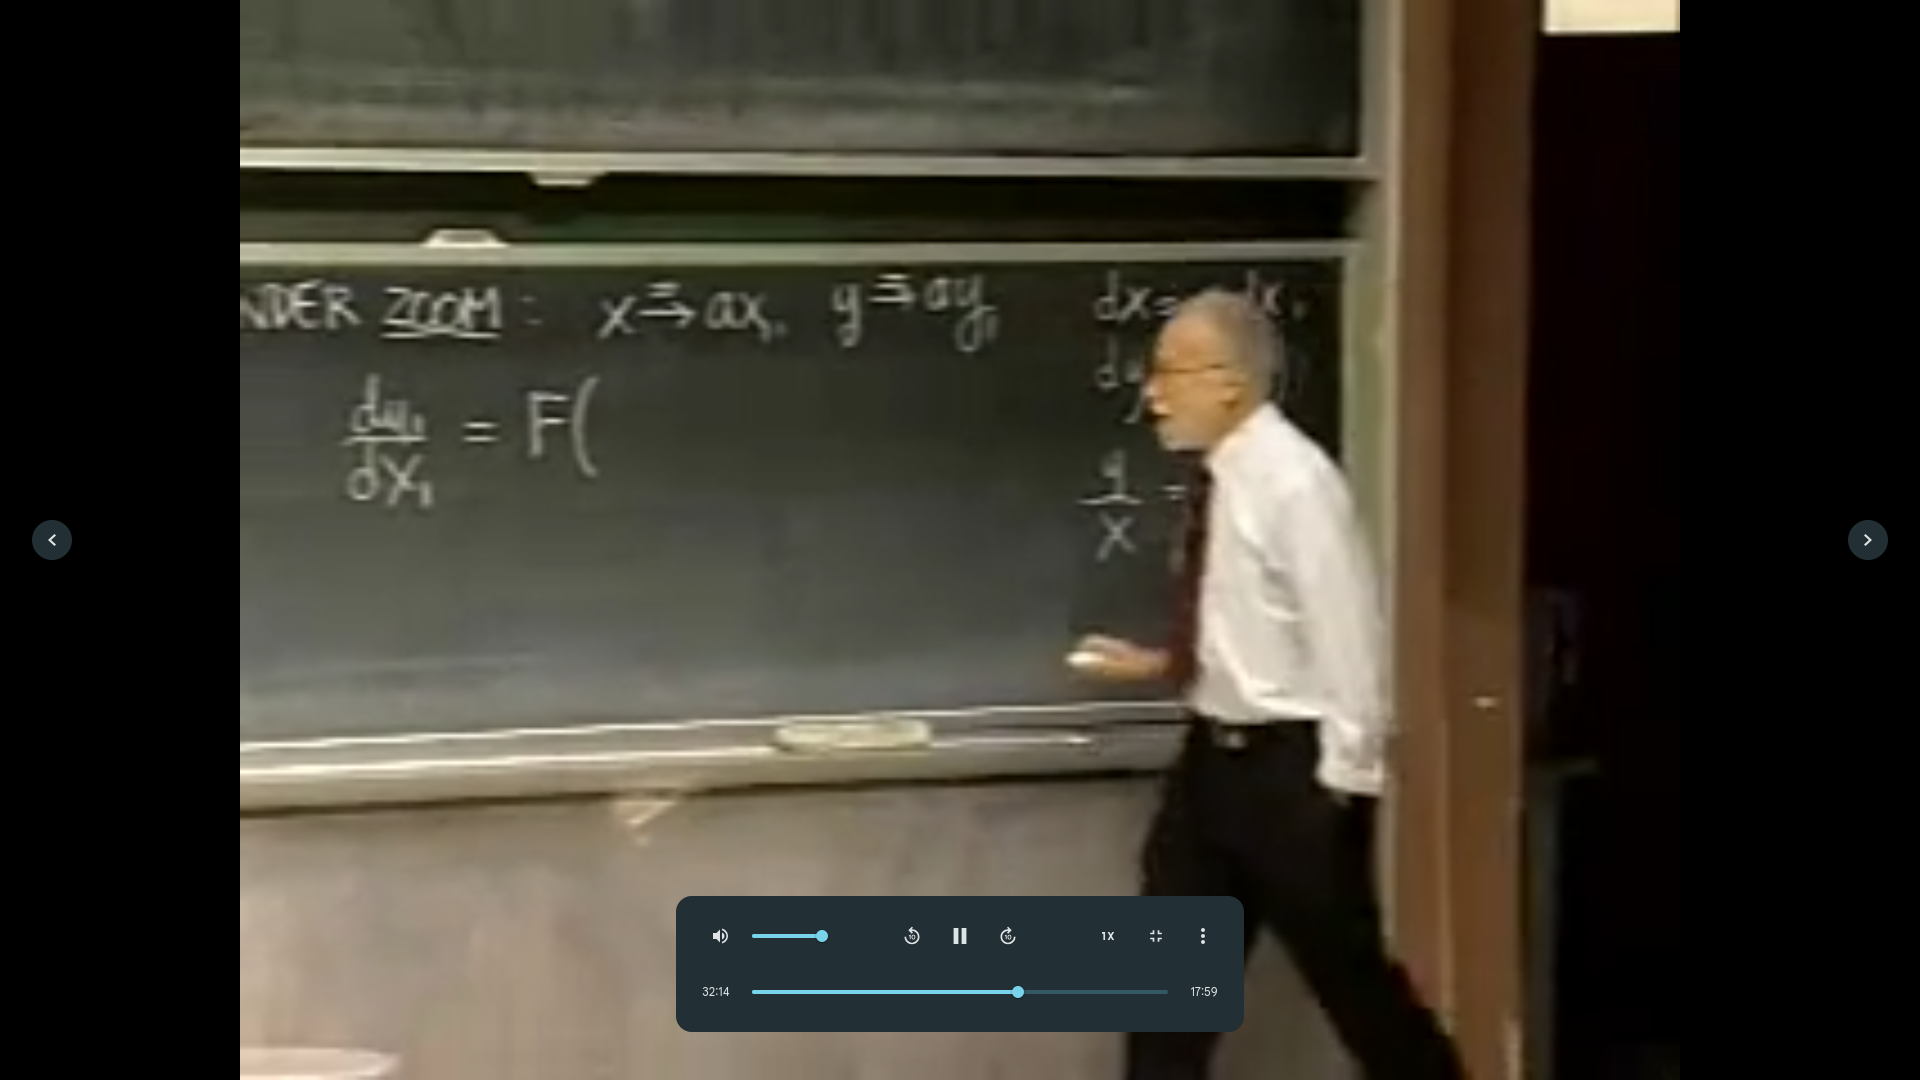 NDER ZOOM : x ⇒ ax₁, y ⇒ ay₁
dx = dx₁
dy
dy₁/dx₁ = F(
y/x =
1X
32:14
17:59